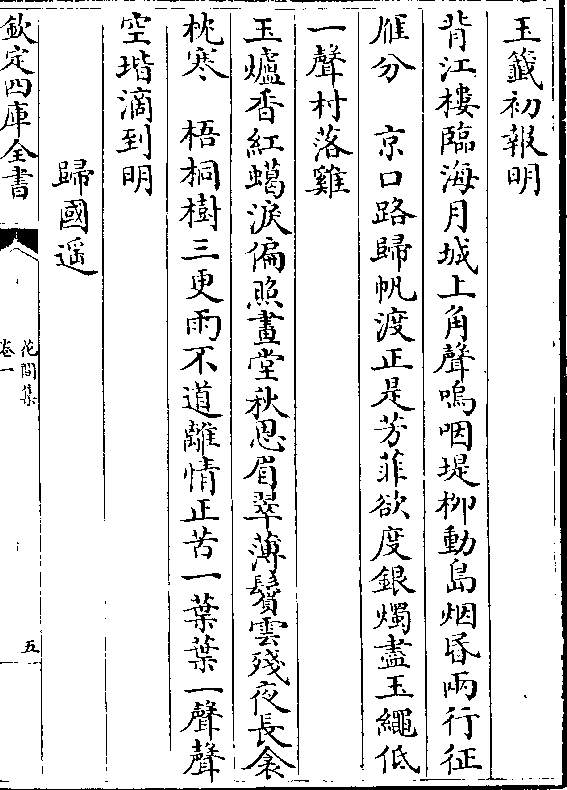 玉籤初報明
背江樓臨海月城上角聲嗚咽堤柳動島烟昏兩行征
雁分　京口路歸帆渡正是芳菲欲度銀燭盡玉繩低
一聲村落雞
玉爐香紅蠟淚偏照畫堂秋思眉翠薄鬢雲殘夜長衾
枕寒　梧桐樹三更雨不道離情正苦一葉葉一聲聲
空堦滴到明
歸國遥
欽定四庫全書
花間集
卷一
五